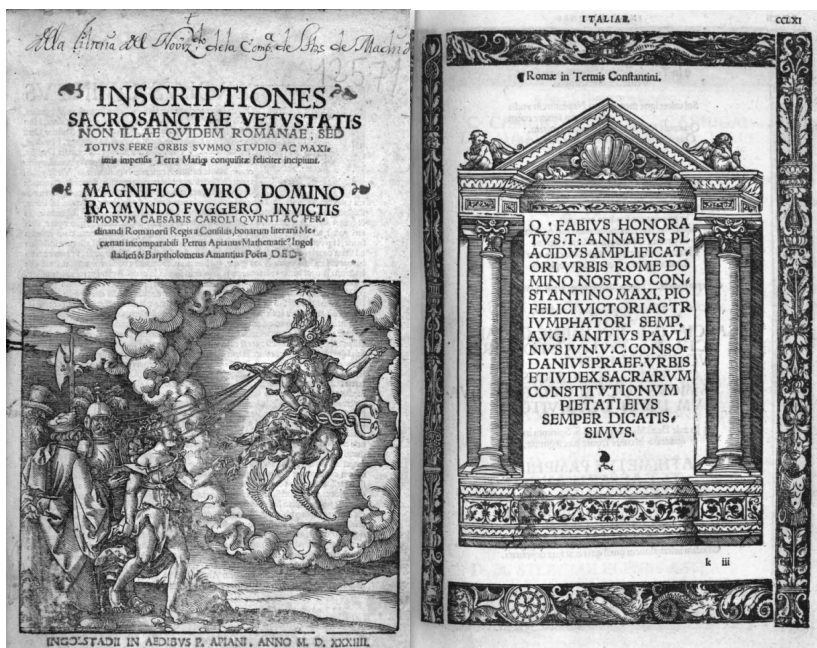 alla libreria del Noviz.do de la Comp.a de Jhs de Madrid
12571
INSCRIPTIONES
SACROSANCTAE VETVSTATIS
NON ILLAE QVIDEM ROMANAE, SED
TOTIVS FERE ORBIS SVMMO STVDIO AC MAXI⸗
mis impensis Terra Mariq; conquisitæ feliciter incipiunt.
MAGNIFICO VIRO DOMINO
RAYMVNDO FVGGERO INVICTIS
SIMORVM CAESARIS CAROLI QVINTI AC FER⸗
dinandi Romanorū Regis a Consilijs, bonarum literarū Me⸗
cænati incomparabili Petrus Apianus Mathematicus Ingol
stadiēsis & Barptholomeus Amantius Poëta DED.
INGOLSTADII IN AEDIBVS P. APIANI, ANNO M. D. XXXIIII.
ITALIAE.
CCLXI
Romæ in Termis Constantini.
Q. FABIVS HONORA
TVS. T: ANNAEVS PL
ACIDVS AMPLIFICAT⸗
ORI VRBIS ROME DO
MINO NOSTRO CON⸗
STANTINO MAXI, PIO
FELICI VICTORI AC TR
IVMPHATORI SEMP.
AVG. ANITIVS PAVLI
NVS IVN. V. C. CONSO⸗
DANIVS PRAEF. VRBIS
ET IVDEX SACRARVM
CONSTITVTIONVM
PIETATI EIVS
SEMPER DICATIS⸗
SIMVS.
k iii